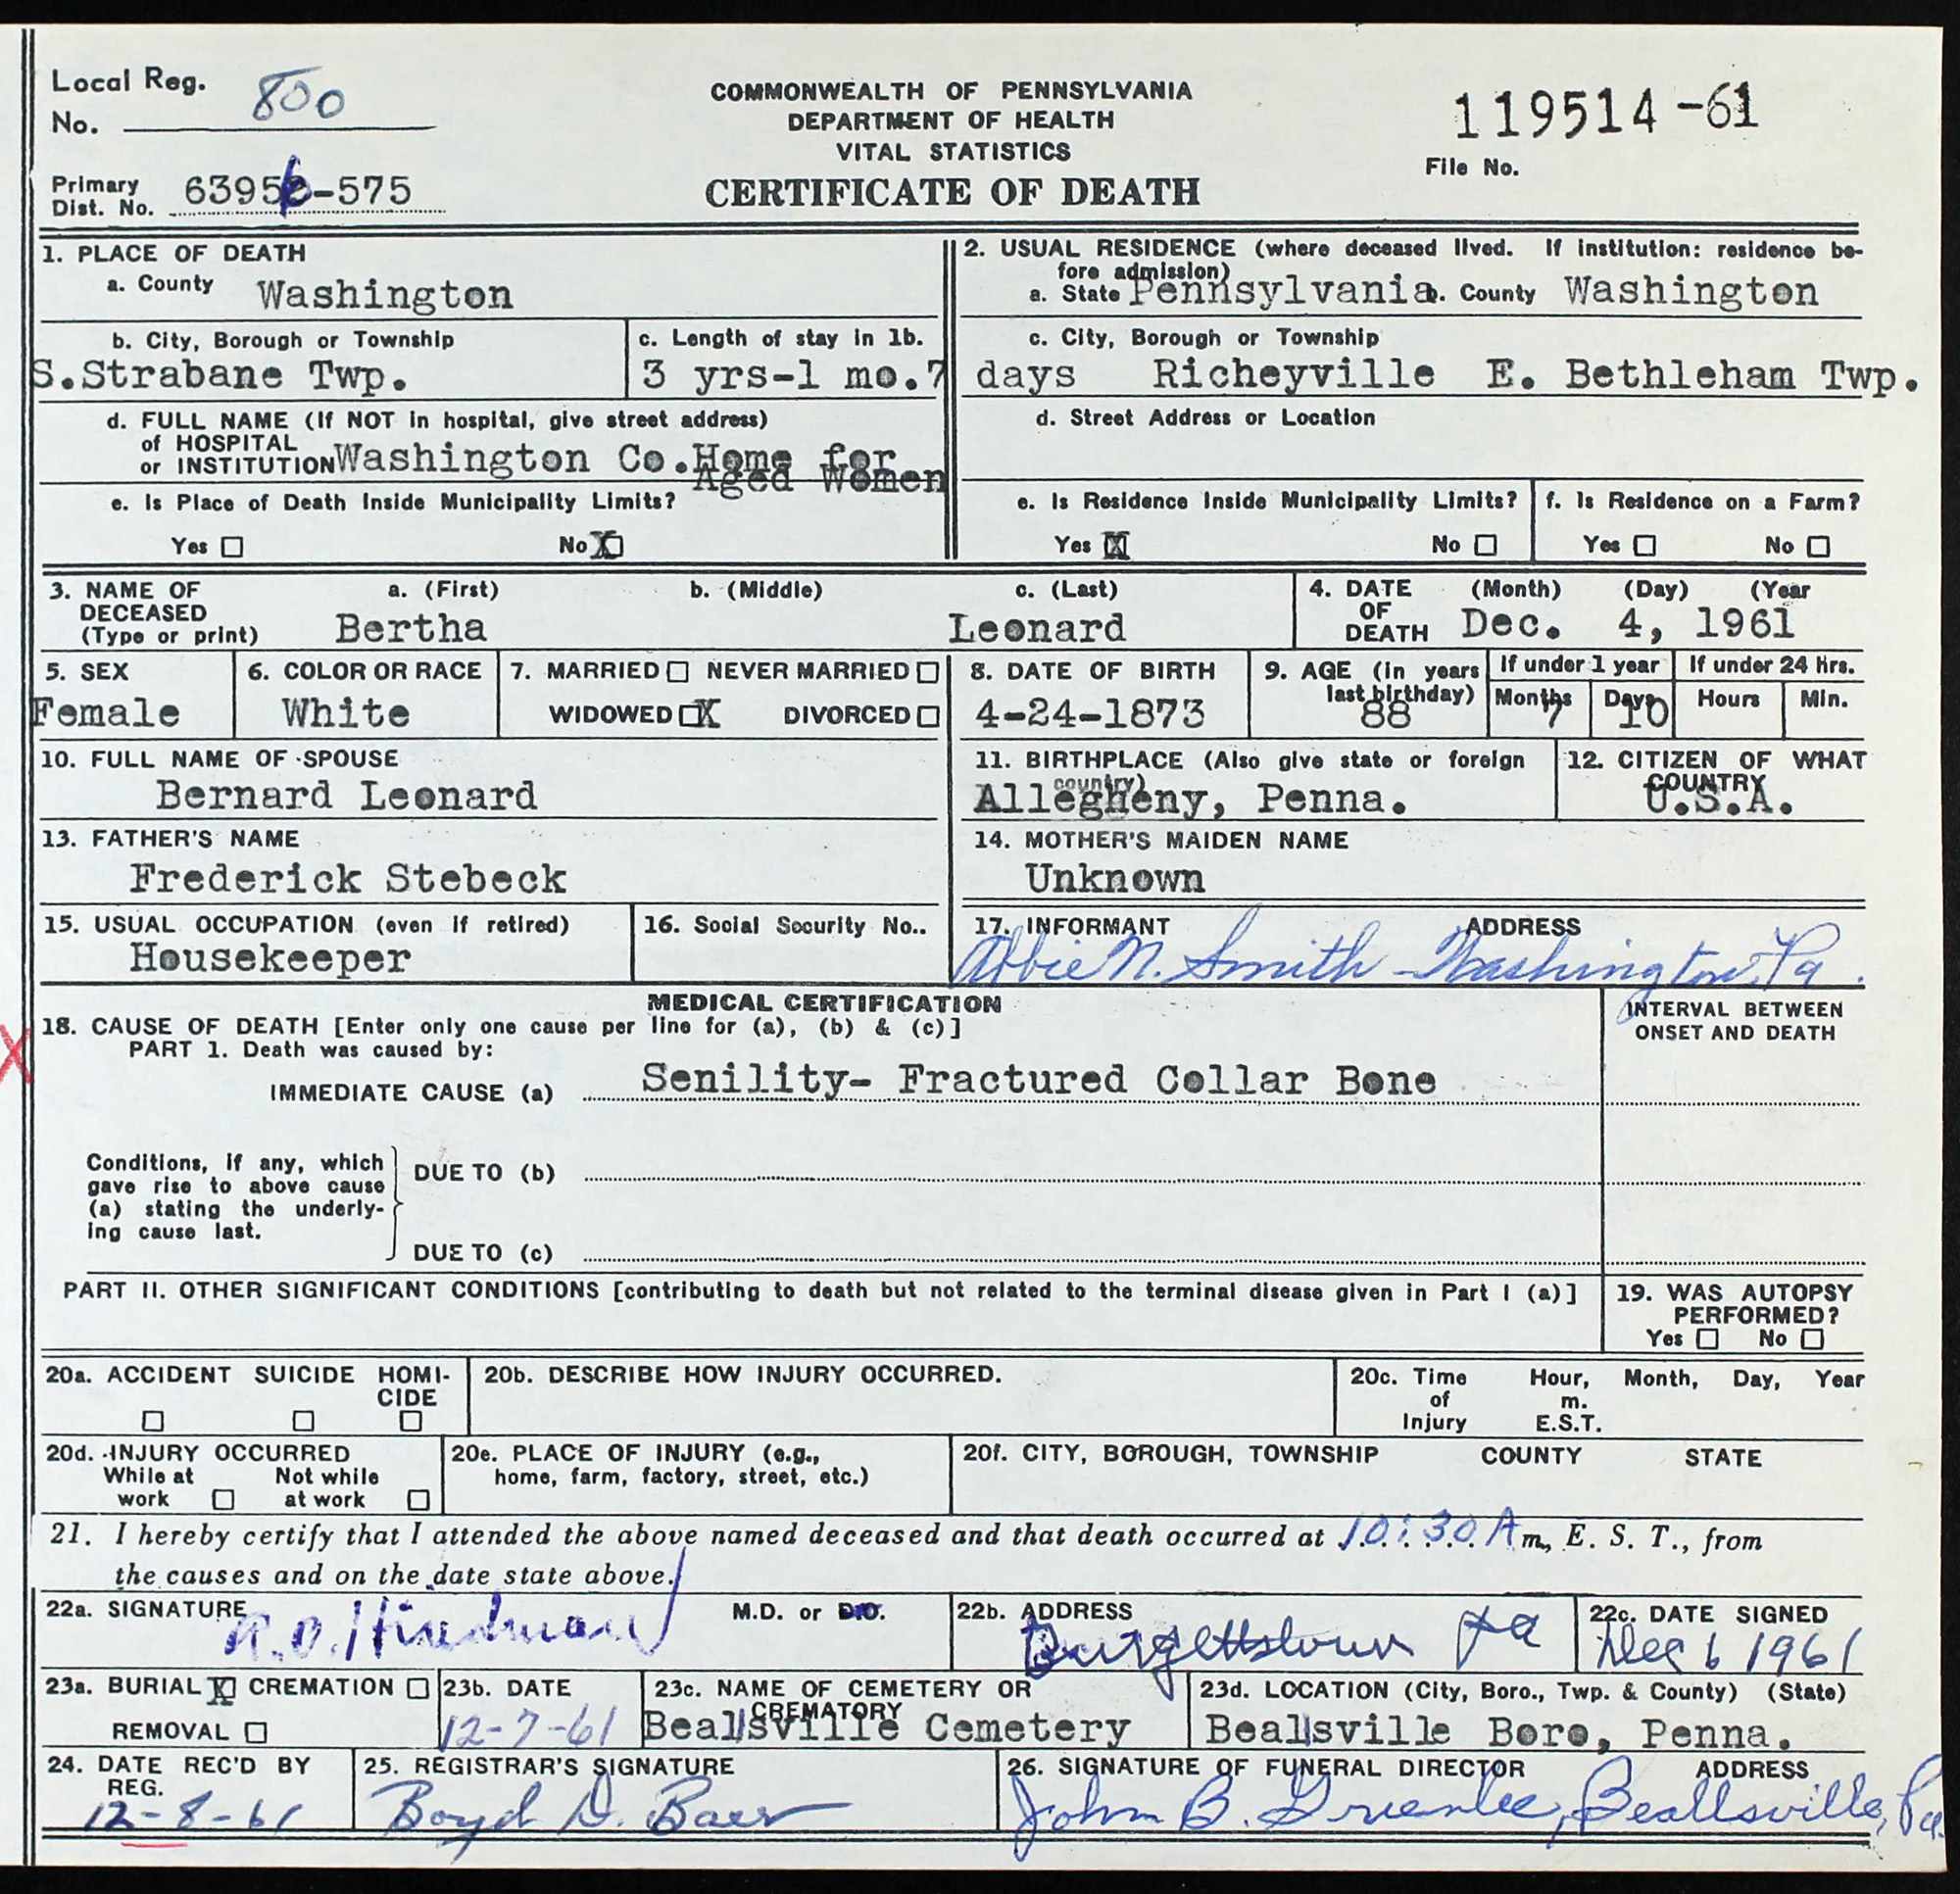 Local Reg. No. 800
COMMONWEALTH OF PENNSYLVANIA
DEPARTMENT OF HEALTH
VITAL STATISTICS
CERTIFICATE OF DEATH
119514-61
File No.
Primary Dist. No. 6395-575
1. PLACE OF DEATH
a. County Washington
b. City, Borough or Township
S.Strabane Twp.
c. Length of stay in 1b.
3 yrs-1 mo.7 days
d. FULL NAME (If NOT in hospital, give street address)
of HOSPITAL
or INSTITUTION Washington Co.Home for
Aged Women
e. Is Place of Death Inside Municipality Limits?
Yes ☐ No ☒
2. USUAL RESIDENCE (where deceased lived. If institution: residence be-
fore admission)
a. State Pennsylvania b. County Washington
c. City, Borough or Township
Richeyville E. Bethleham Twp.
d. Street Address or Location
e. Is Residence Inside Municipality Limits?
Yes ☒ No ☐
f. Is Residence on a Farm?
Yes ☐ No ☐
3. NAME OF DECEASED (Type or print)
a. (First) b. (Middle) c. (Last)
Bertha Leonard
4. DATE OF DEATH (Month) (Day) (Year
Dec. 4, 1961
5. SEX
Female
6. COLOR OR RACE
White
7. MARRIED ☐ NEVER MARRIED ☐
WIDOWED ☒ DIVORCED ☐
8. DATE OF BIRTH
4-24-1873
9. AGE (in years last birthday)
88
If under 1 year
Months 7 Days 10
If under 24 hrs.
Hours Min.
10. FULL NAME OF SPOUSE
Bernard Leonard
11. BIRTHPLACE (Also give state or foreign country)
Allegheny, Penna.
12. CITIZEN OF WHAT COUNTRY
U.S.A.
13. FATHER'S NAME
Frederick Stebeck
14. MOTHER'S MAIDEN NAME
Unknown
15. USUAL OCCUPATION (even if retired)
Housekeeper
16. Social Security No..
17. INFORMANT ADDRESS
Abbie N. Smith - Washington, Pa.
MEDICAL CERTIFICATION
18. CAUSE OF DEATH [Enter only one cause per line for (a), (b) & (c)]
PART 1. Death was caused by:
IMMEDIATE CAUSE (a) Senility- Fractured Collar Bone
INTERVAL BETWEEN
ONSET AND DEATH
Conditions, if any, which
gave rise to above cause
(a) stating the underly-
ing cause last.
DUE TO (b)
DUE TO (c)
PART II. OTHER SIGNIFICANT CONDITIONS [contributing to death but not related to the terminal disease given in Part I (a)]
19. WAS AUTOPSY
PERFORMED?
Yes ☐ No ☐
20a. ACCIDENT SUICIDE HOMI-
CIDE
20b. DESCRIBE HOW INJURY OCCURRED.
20c. Time of Injury Hour, m. E.S.T. Month, Day, Year
20d. INJURY OCCURRED
While at work ☐ Not while at work ☐
20e. PLACE OF INJURY (e.g.,
home, farm, factory, street, etc.)
20f. CITY, BOROUGH, TOWNSHIP COUNTY STATE
21. I hereby certify that I attended the above named deceased and that death occurred at 10:30 A m., E. S. T., from
the causes and on the date state above.
22a. SIGNATURE M.D. or D.O.
R.O. Hindman
22b. ADDRESS
Burgettstown Pa
22c. DATE SIGNED
Dec 6 1961
23a. BURIAL ☒ CREMATION ☐
REMOVAL ☐
23b. DATE
12-7-61
23c. NAME OF CEMETERY OR CREMATORY
Beallsville Cemetery
23d. LOCATION (City, Boro., Twp. & County) (State)
Beallsville Boro, Penna.
24. DATE REC'D BY REG.
12-8-61
25. REGISTRAR'S SIGNATURE
Boyd D. Baer
26. SIGNATURE OF FUNERAL DIRECTOR ADDRESS
John B. Greenlee, Beallsville, Pa.